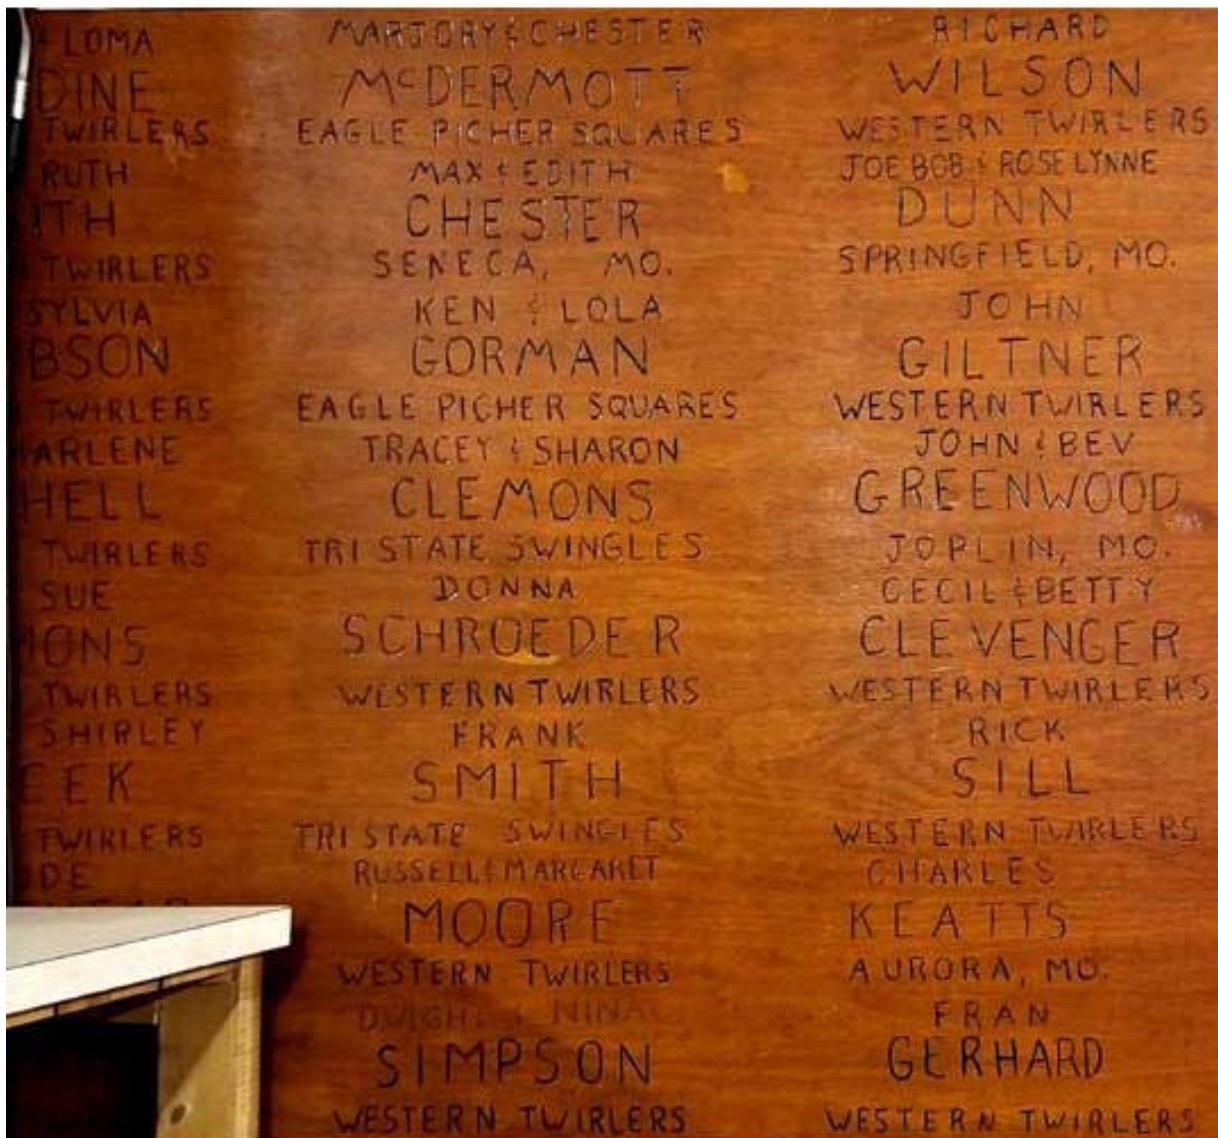 & LOMA
DINE
TWIRLERS
RUTH
ITH
TWIRLERS
SYLVIA
BSON
TWIRLERS
ARLENE
HELL
TWIRLERS
SUE
MONS
TWIRLERS
SHIRLEY
EEK
TWIRLERS
DE
MARJORY & CHESTER
McDERMOTT
EAGLE PICHER SQUARES
MAX & EDITH
CHESTER
SENECA, MO.
KEN & LOLA
GORMAN
EAGLE PICHER SQUARES
TRACEY & SHARON
CLEMONS
TRI STATE SWINGLES
DONNA
SCHROEDER
WESTERN TWIRLERS
FRANK
SMITH
TRI STATE SWINGLES
RUSSELL & MARGARET
MOORE
WESTERN TWIRLERS
DWIGHT & NINA
SIMPSON
WESTERN TWIRLERS
RICHARD
WILSON
WESTERN TWIRLERS
JOE BOB & ROSELYNNE
DUNN
SPRINGFIELD, MO.
JOHN
GILTNER
WESTERN TWIRLERS
JOHN & BEV
GREENWOOD
JOPLIN, MO.
CECIL & BETTY
CLEVENGER
WESTERN TWIRLERS
RICK
SILL
WESTERN TWIRLERS
CHARLES
KEATTS
AURORA, MO.
FRAN
GERHARD
WESTERN TWIRLERS